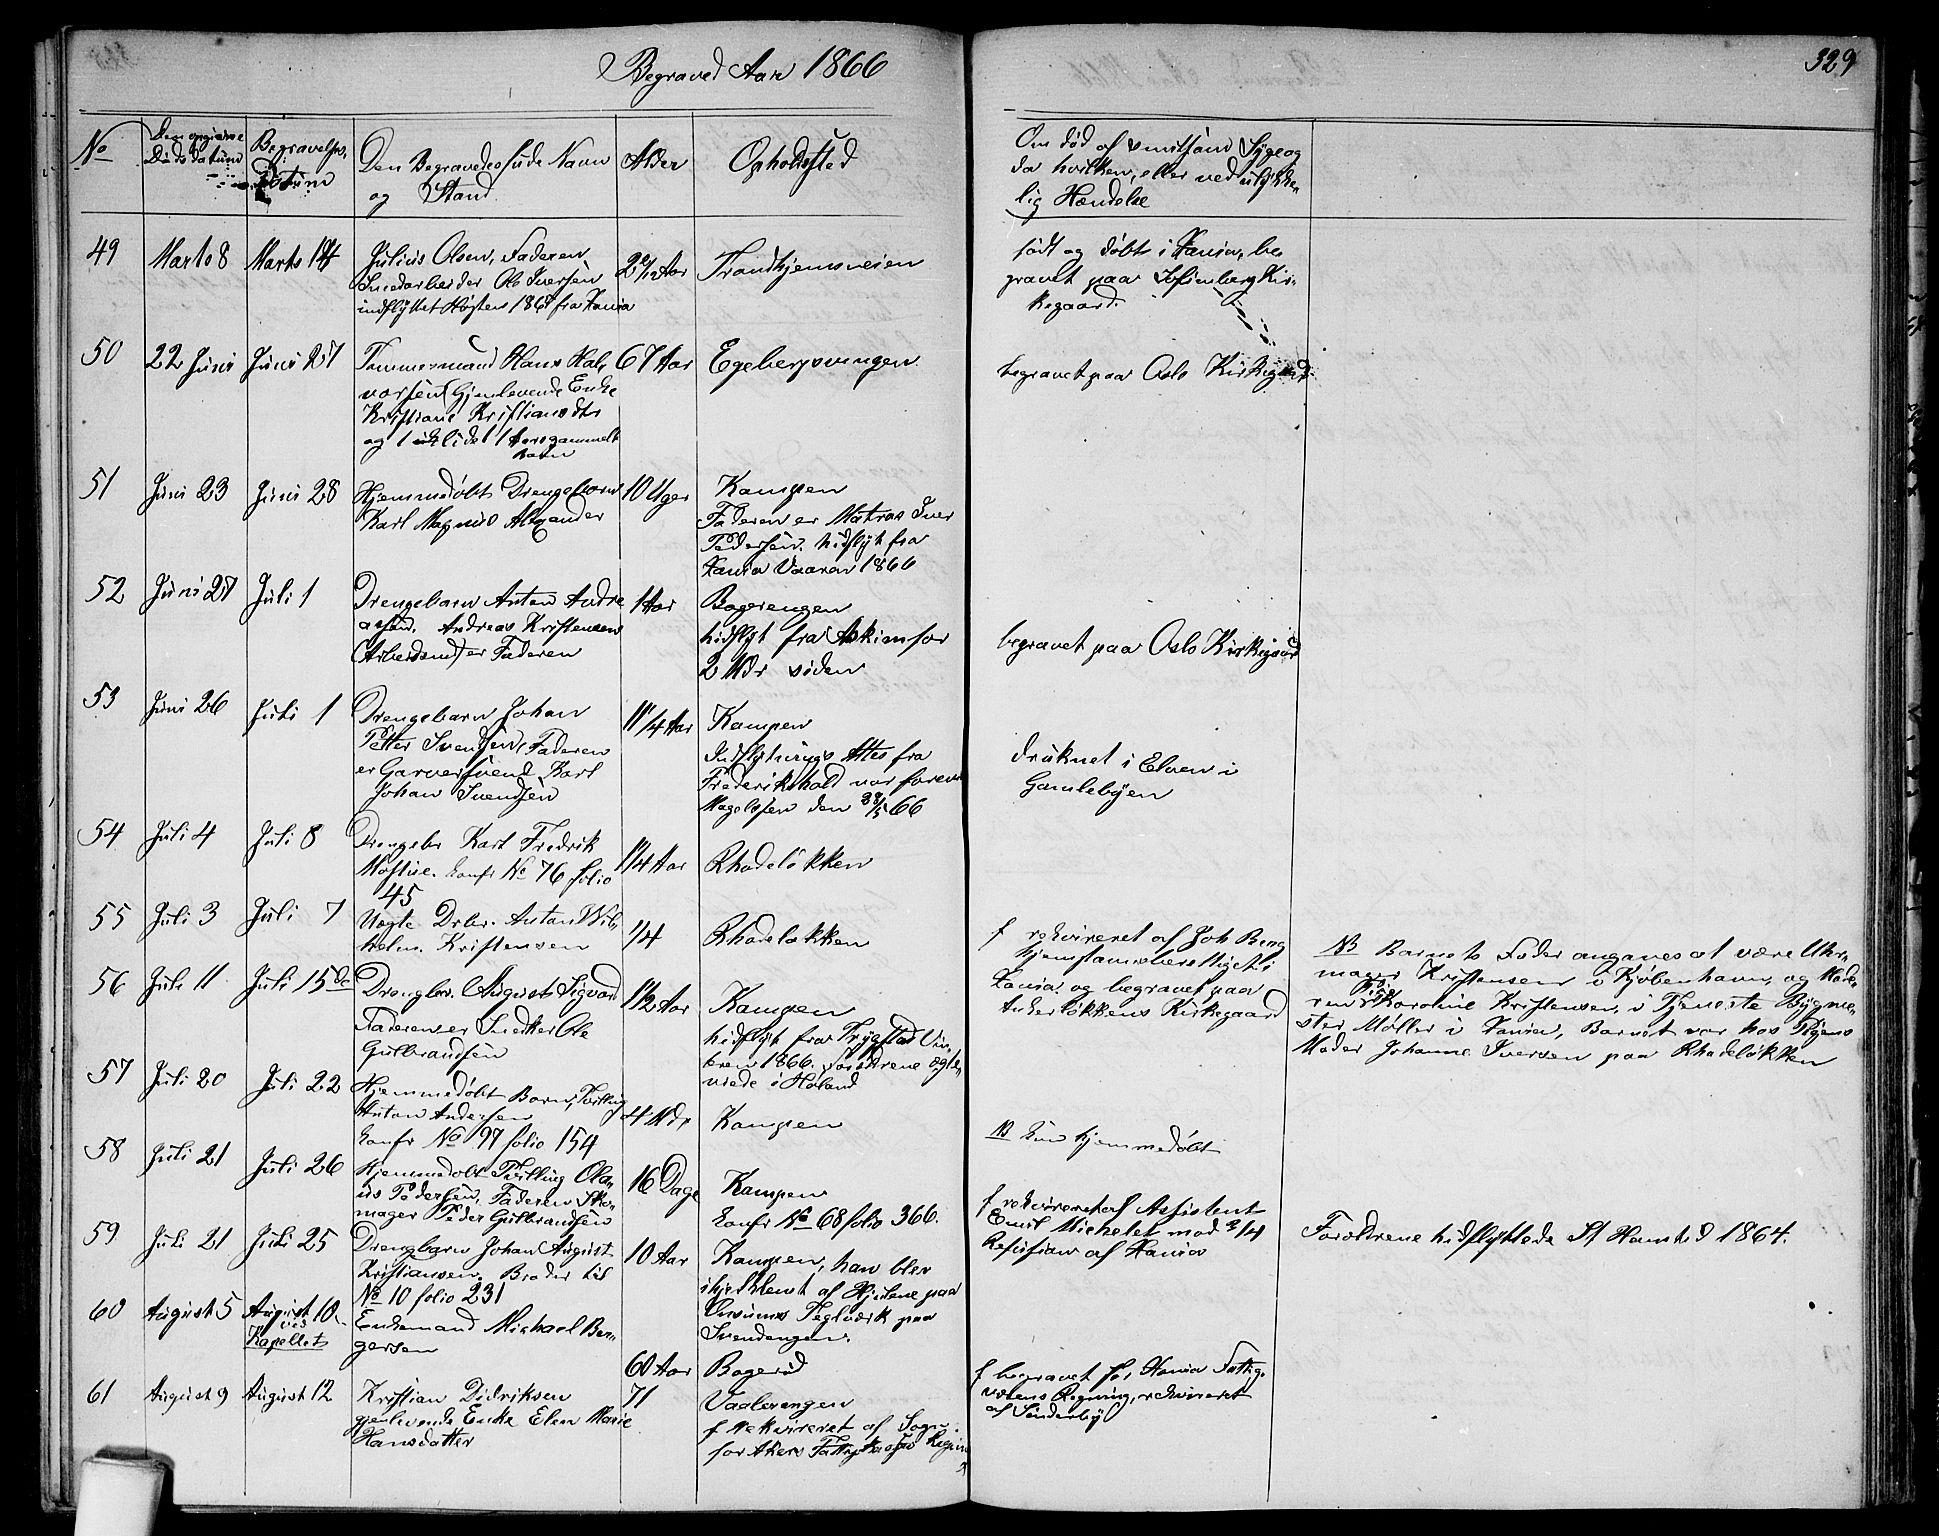 Begraved Aar 1866
329
No
Den opgivne Döds datum
Begravelses Datum
Den Begravedes fulde Navn og Stand.
Alder
Opholdssted
Om död af smitsom Sygeog
da hvilken, eller ved ulykke-
lig Hændelse
49 Marts 8 Marts 14 Julius Olsen, Faderen
Ole Iversen
indflyttet Høsten fra Xania
Aar Trondhjemsveien
født og døbt i Xania, be
gravet paa Sofienberg Kir-
kegaard.
50 22 Juni Juni 27 Tømmermand Hans Hal-
vorsen Gjenlevende Enke
Kristiane Kristiansdtr
og 1 Aars gammelt
Barn
67 Aar Egebergsvingen
begravet paa Oslo Kirkegaard
51 Juni 23 Juni 28 Hjemmedøbt Drengebarn
Karl Magnus Alexander
10 Uger Kampen
Faderen er Matros Iver
Pedersen. hidflyt fra
Xania Vaaren 1866
52 Juni 27 Juli 1 Drengebarn Anton Andre
asen. Andreas Kristensen
(Arbeidsmd) er Faderen
1 Aar Bogerengen
hidflyt fra Askim for
2 Mdr siden
begravet paa Oslo Kirkegaard
53 Juni 26 Juli 1 Drengebarn Johan
Petter Svendsen, Faderen
er Garversvend Karl
Johan Svendsen
1 1/4 Aar Kampen
Indflytnings Attes fra
Frederikshald var forevist
Magelssen den 66
druknet i Elven i
Gamlebyen
54 Juli 4 Juli 8 Drengebr Karl Fredrik
Konfr No 76 folio
45
1 1/4 Aar Rhodeløkken
55 Juli 3 Juli 7 Uægte Drbr. Anton Wil-
helm. Kristensen
1/4 Rhodeløkken
f rekvireret af Joh Berg
i
Xania. og begravet paa
Ankerløkkens Kirkegaard
NB Barnets Fader angaves at være Uhr-
mager Kristensen i Kjøbenhavn, og Mode-
ren Pige Karoline Kristensen, i Tjeneste Bygme-
ster Møller i Xania, Barnet var hos Pigens
Moder Johanne Iversen paa Rhodeløkken
56 Juli 11 Juli 15de Drengebr. August Sigvard
Faderen er Snedker Ole
Gulbrandsen
1 1/2 Aar Kampen
hidflyt fra Trygstad Vin-
teren 1866. Forældrene ægte-
viede i Høland
57 Juli 20 Juli 22 Hjemmedøbt Barn, Tvilling
Anton Andersen
konfr No 97 folio 154
4 Mdr Kampen
NB kun hjemmedøbt
58 Juli 21 Juli 26 Hjemmedøbt Tvilling Ola-
us Pedersen, Faderen Sko-
mager Peder Gulbrandsen
16 Dage Kampen
konfr No 68 folio 366.
f rekvireret af Assistent
Emil Michelet mod 3/4
Refusion af Xania
Forældrene hidflyttede St Hanstid 1864.
59 Juli 21 Juli 25 Drengbarn Johan August
Kristiansen. Broder til
No 10 folio 231
10 Aar Kampen, han blev
ihjelklemt af Hjulene paa
Teglværk paa
Svendengen.
60 August 5 August 10 ved Kapellet
Enkemand Michael Ber-
gersen
60 Aar Bogerud
f begravet for Xania Fattig-
væsens Regning, rekvireret
af Sønderby
61 August 9 August 12 Kristian Didriksen
gjenlevende Enke Elen Marie
Hansdatter
71 Vaalerengen
f rekvireret af Sogn
for Akers Regning